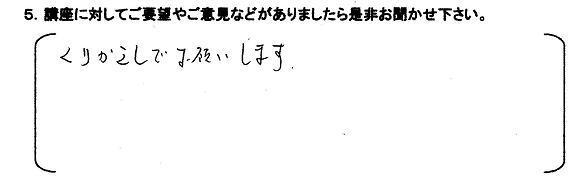 5. 講座に対してご要望やご意見などがありましたら是非お聞かせ下さい。
くりかえしでお願いします